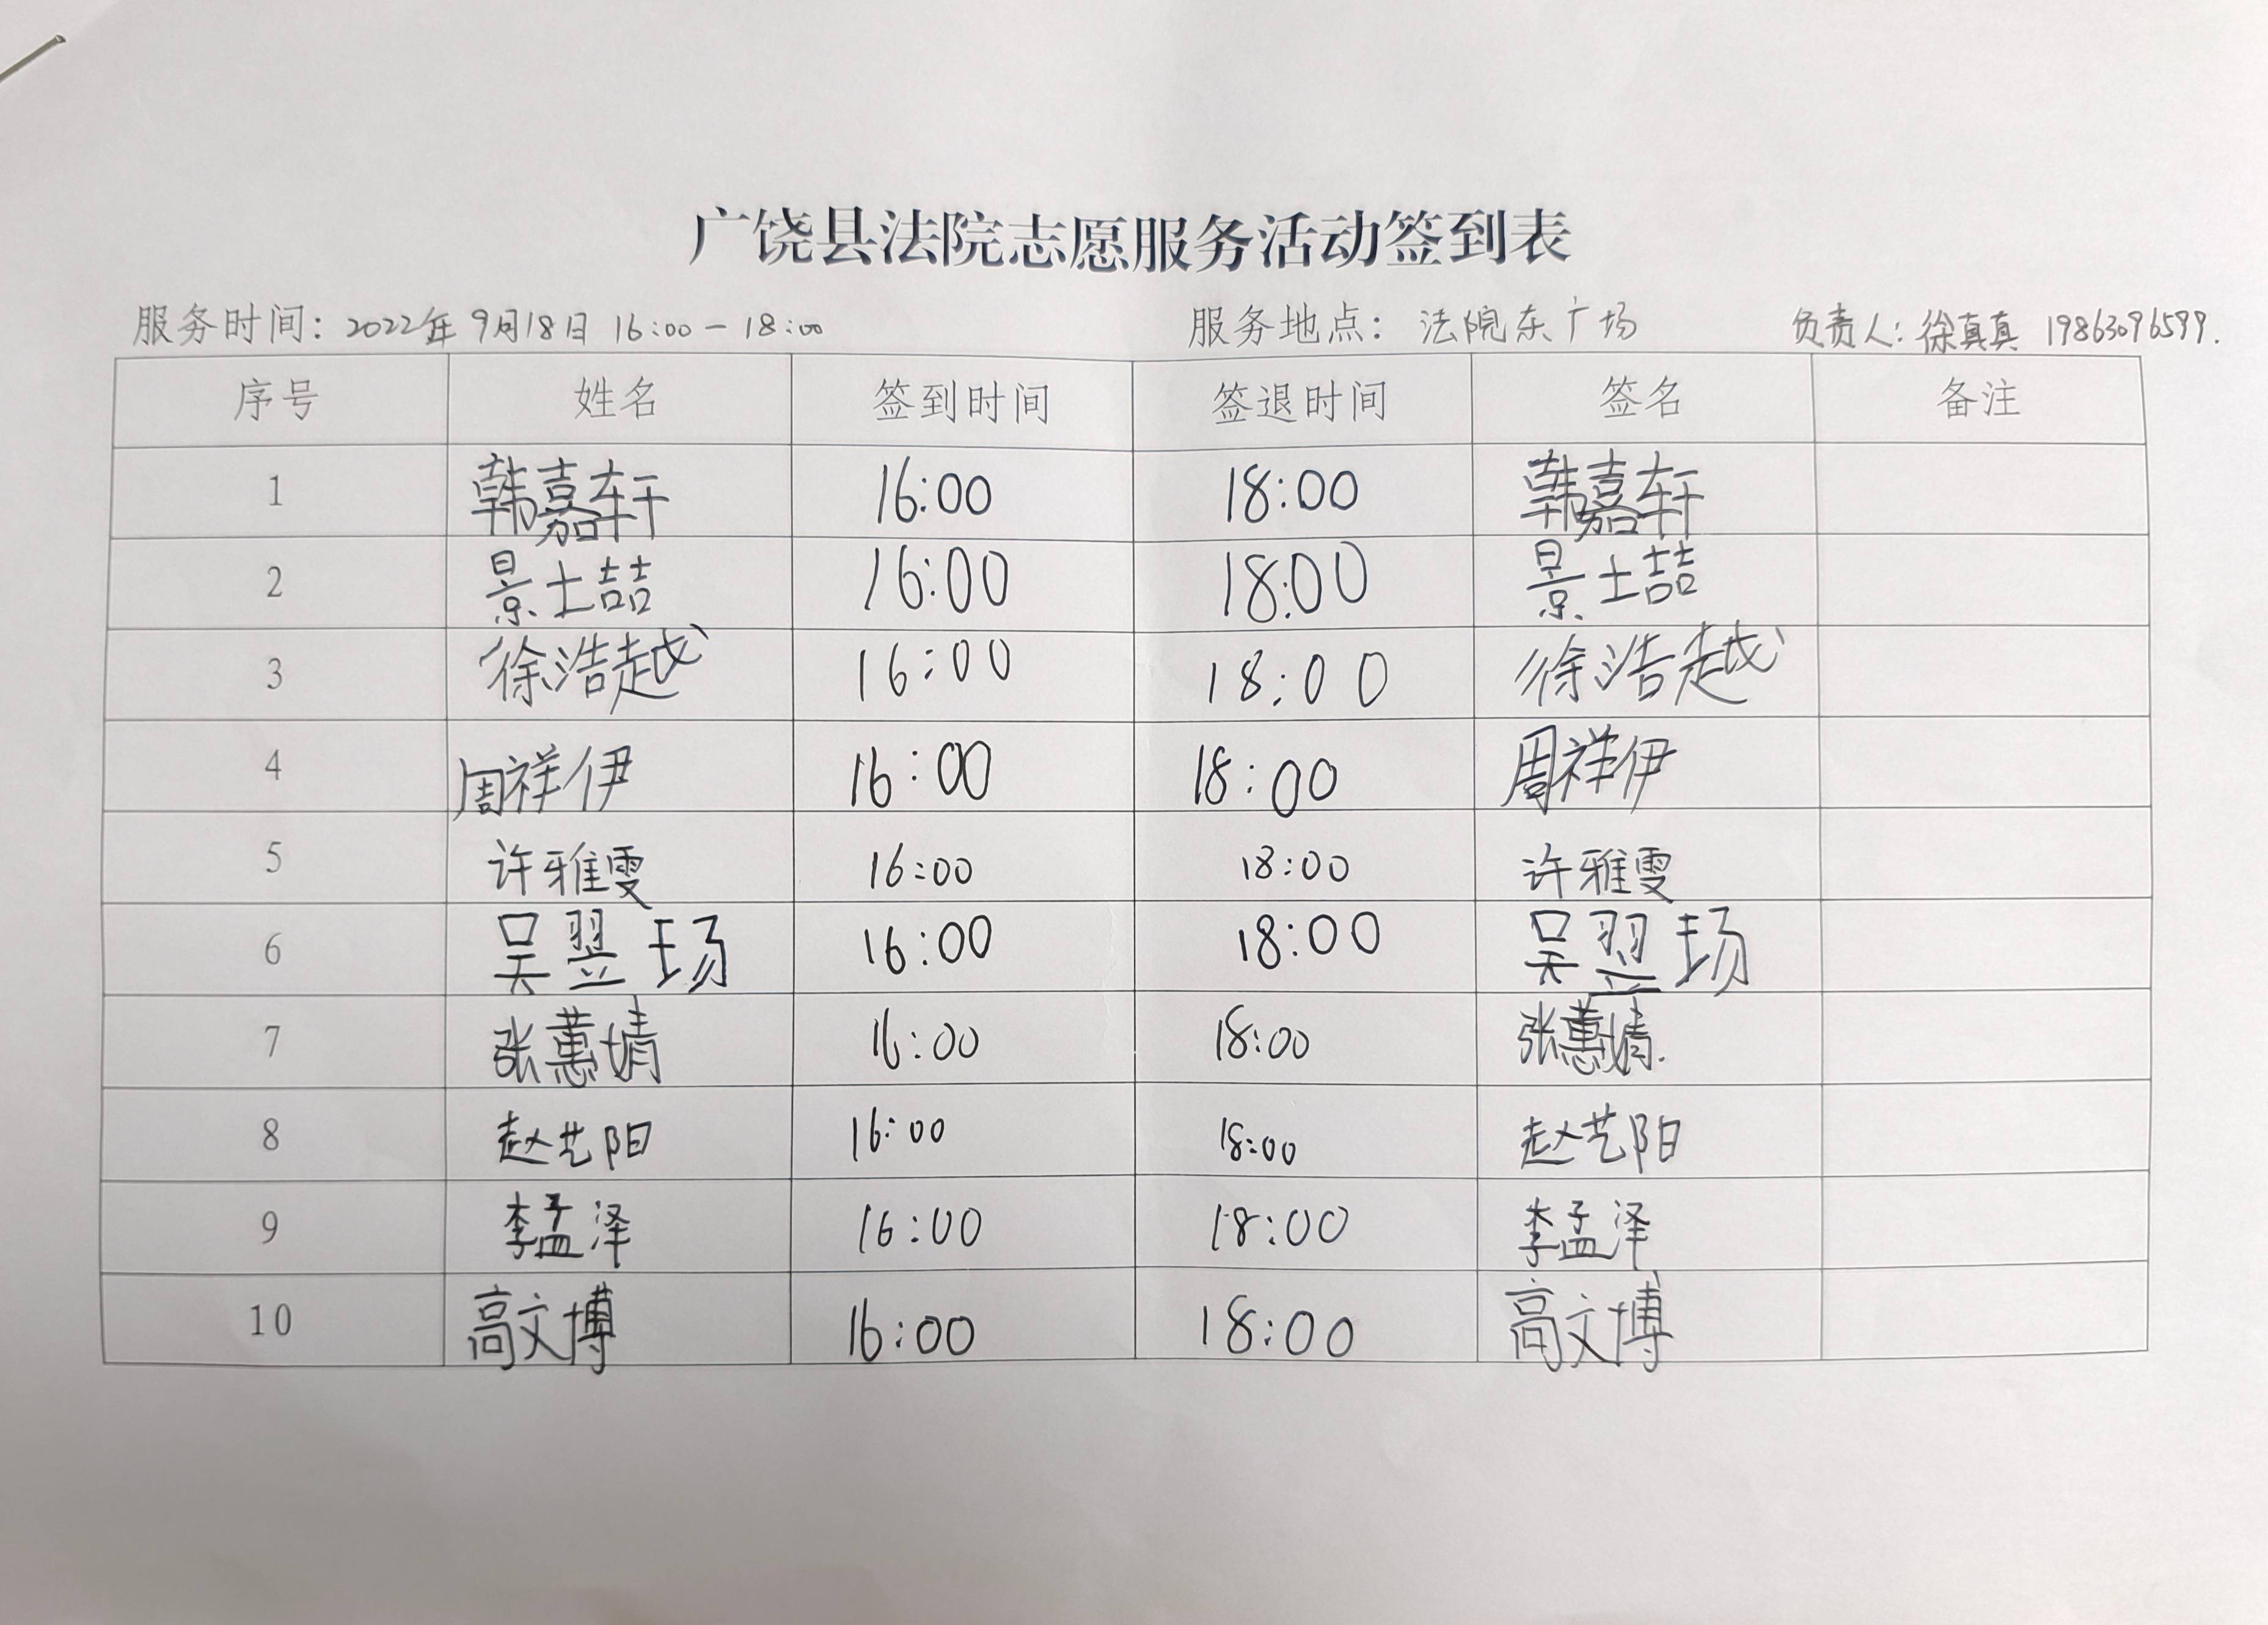 广饶县法院志愿服务活动签到表
服务时间: 2022年9月18日 16:00-18:00 服务地点: 法院东广场 负责人: 徐真真 19863096599.
序号 姓名 签到时间 签退时间 签名 备注
1 韩嘉轩 16:00 18:00 韩嘉轩
2 景士喆 16:00 18:00 景士喆
3 徐浩越 16:00 18:00 徐浩越
4 周祥伊 16:00 18:00 周祥伊
5 许雅雯 16:00 18:00 许雅雯
6 吴翌玚 16:00 18:00 吴翌玚
7 张蕙婧 16:00 18:00 张蕙婧.
8 赵艺阳 16:00 18:00 赵艺阳
9 李孟泽 16:00 18:00 李孟泽
10 高文博 16:00 18:00 高文博